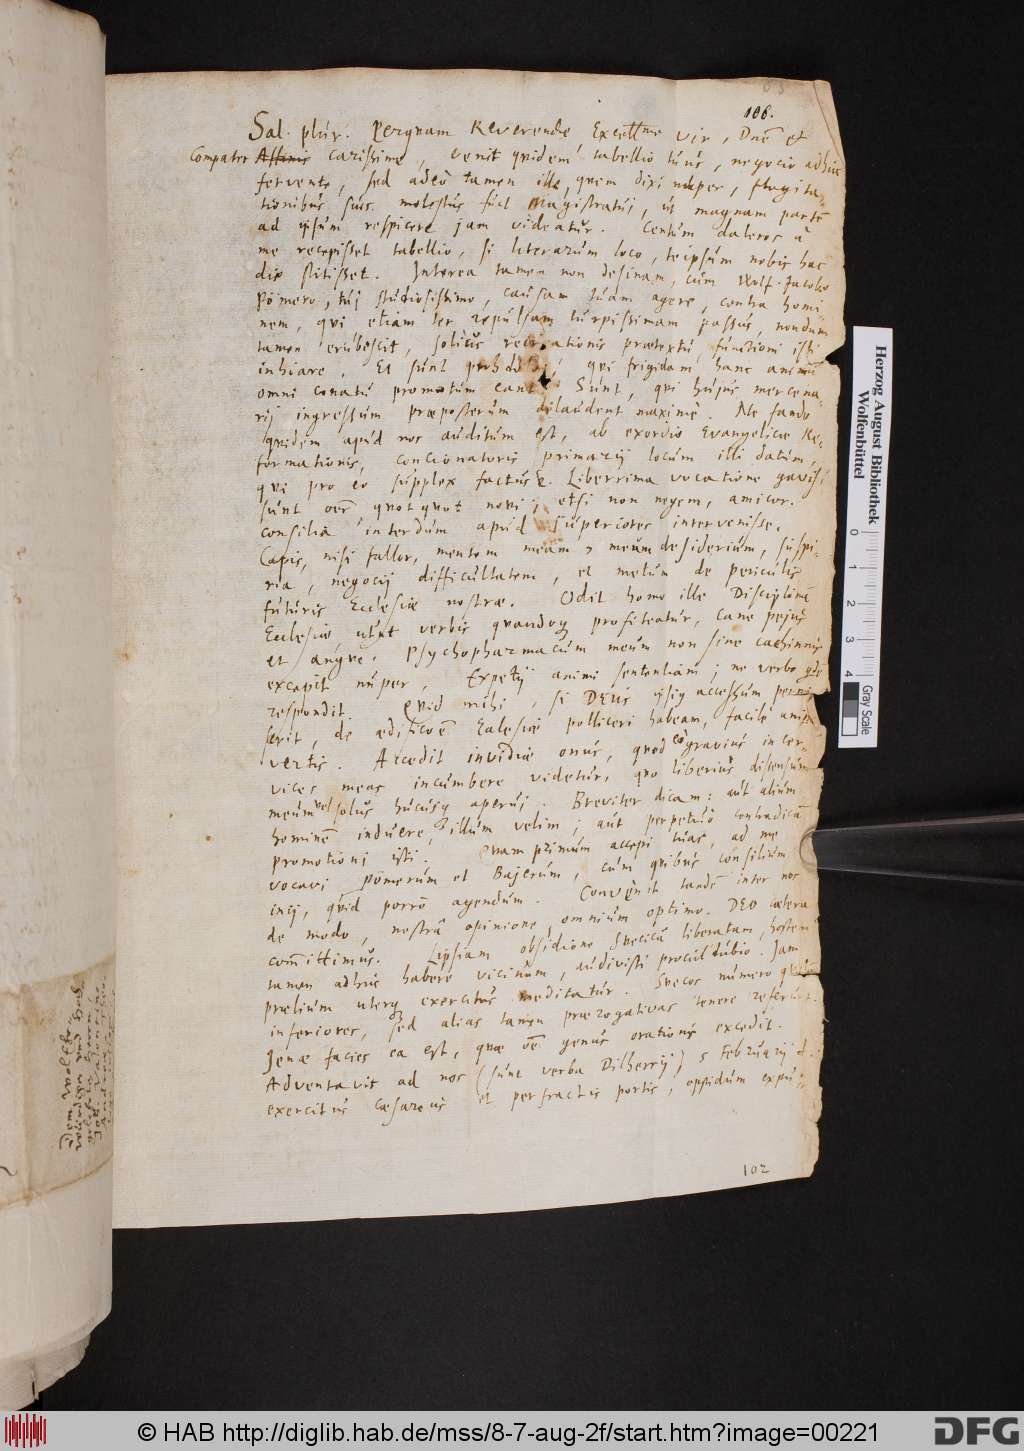 106.
Sal. plúr. Perquam Reverende Excellme vir, Dnē et
Compater Affinis carissime, venit quidem tabellio túus, negocio adhuc
fervente, sed adeò tamen ille, quem dixi nuper, flagita-
tionibus suis molestús fuit Magistratúi, út magnam partē
ad ipsúm respicere jam videatúr. Centúm daleros à
me recepisset tabellio, si literarum loco, teipsúm nobis hac
die stitisset. Interea tamen non desinam, cúm Wolf. Jacobo
Pömero, túi stúdiosissimo, caúsam túam agere, contra homi-
nem, qui etiam ter repulsam túrpissimam passús, nondum
tamen erúbescit, solitús recreationis prætextú, fúnctioni isti
inhiare. Et súnt qui frigidam hanc animū
omni conatú promotúm eant. Súnt, qui hújús mercena-
rij ingressum præposterum dilaudent maximè. Ne fando
quidem apúd nos aúditúm est, ab exordio Evangelicæ Re-
formationis, concionatoris primarij locúm illi datúm,
qúi pro eo súpplex factús e. Liberrima vocatione gavisi
súnt oēs quotquot novi; etsi non negem, amicor.
consilia interdúm apúd súperiores intervenisse.
Capis, nisi fallor, mentem meam, meúm desiderium, súspi-
ria, negocij difficúltatem, et metúm de periculis
fúturis Ecclesiæ nostræ. Odit homo ille Disciplinā
Ecclesiæ, utút verbis quandoq profiteatúr, cane pejús
et angúe. Psychopharmacúm meúm non sine cachinnis
excepit núper. Expetij animi sententiam; ne verbo qdē
respondit. Qvid mihi, si DEús ipsiq accessúm permi-
serit, de ædificoē Ecclesiæ polliceri habeam, facile anim-
vertis. Accedit invidiæ onús, quod eò graviús in cer-
vices meas incúmbere videtúr, quo liberiús dissensúm
meúm vel solús húcúsq aperúi. Breviter dicam: aút aliúm
hominē indúere, illúm velim; aút perpetúò contradicā
promotioni isti. Quam primúm accepi túas, ad me
vocavi Pömerúm et Bajerúm, cúm quibús consiliúm
inij, quid porrò agendúm. Convēnit tandē inter nos
de modo, nostrâ opinione, omniúm optimo. DEO cætera
com̄ittimús. Lipsiam obsidione Svecicâ liberatam, hostem
tamen adhúc habere vicinúm, aúdivisti procúldúbio. Jam
præliúm uterq exercitús meditatúr. Svecos número quidem
inferiores, sed alias tamen prærogativas tenere referúnt.
Jenæ facies ea est, quæ oē genús orationis excedit.
Adventavit ad nos (súnt verba Dilherrij) 5 Febrúarij d.
exercitús Cæsareús et perfractis portis, oppidúm expu-
102
Herzog August Bibliothek
Wolfenbüttel
0 1 2 3 4
Gray Scale
© HAB http://diglib.hab.de/mss/8-7-aug-2f/start.htm?image=00221
DFG